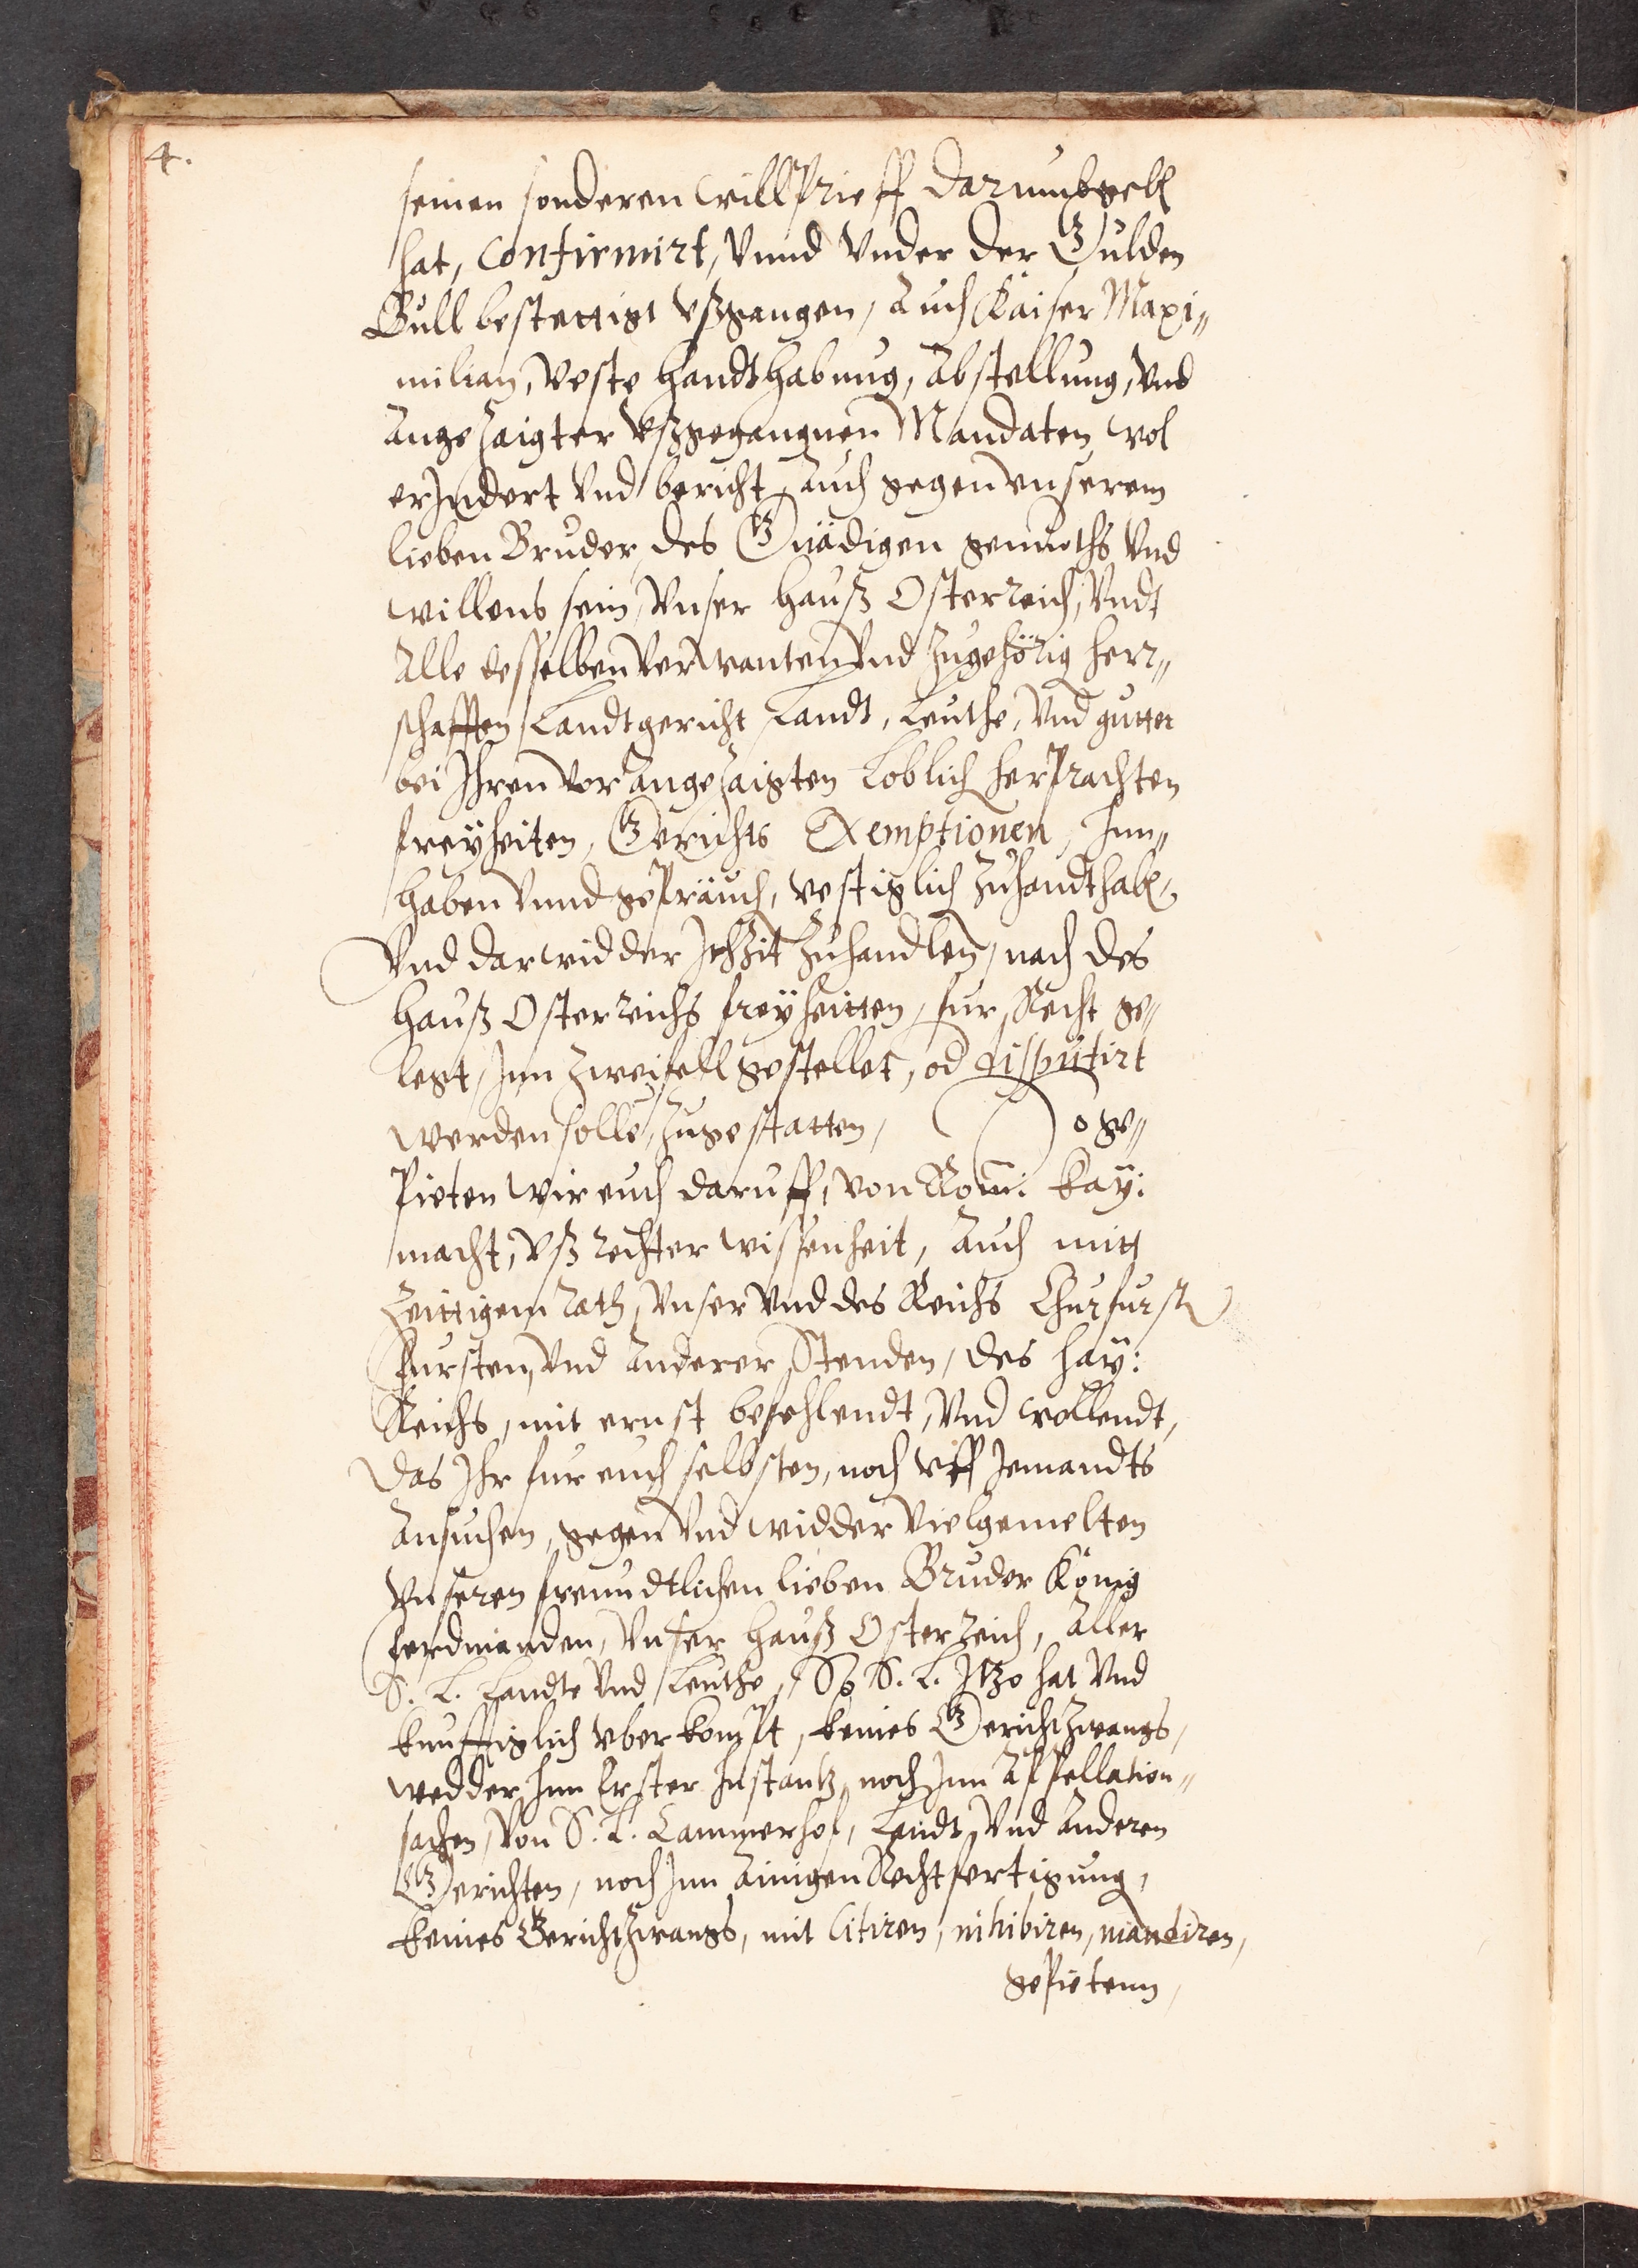 4.
seinen sonderen willPrieff darumb geb
hat, confirmirt, Vnnd Vnder der Gulden
Bull bestettigt vßgangen, Auch Kaiser Maxi„
milian, veste handthabung, Abstellung, Vnd
Angezaigter vßgegangnen Mandaten, wol
erJndert Vnd bericht, auch gegen vnserem
lieben Bruder, des Gnädigen gemuoths Vnd
willens sein, Vnser Hauß Osterreich, Vndt
Alle desselben Verwanten Vnd Zugehörig herr„
schafften, Landtgericht, Landt, Leuthe, Vnd gutter
bei Jhren vor Angezaigten Loblich herPrachten
freyheiten, Gerichts Exemptionen, Jnn„
haben Vnnd gePräuch, vestiglich Zuhandthab.
Vnd darwidder Jchzit Zuhandlen, nach des
Hauß Osterreichs freyheitten, fur Recht ge„
legt, Jnn Zweifell gestellet, od disputirt
werden solle, Zugestatten, So ge„
Pieten wir euch daruff, von Rom: Kay:
macht, vß rechter wissenheit, Auch mitt
Zeittigem rath, Vnser Vnd des Reichs Churfurst
Fursten, Vnd Anderer Stenden, des hay:
Reichs, mit ernst befehlendt, Vnd wollendt,
das Jhr fur euch selbsten, noch vff Jemandts
Ansuchen, gegen Vnd widder Vielgemelten
Vnseren freundtlichen lieben Bruder König
Ferdinanden, Vnser Hauß Osterreich, Aller
S. L. Landte Vnd Leuthe, So S. L. Jtzo hat Vnd
kunfftiglich vberkompt, keines Gerichtzwangs,
wedder Jnn Erster Jnstantz, noch Jnn Appellation„
sachen, Von S. L. Cammerhof, Landt, Vnd Anderen
Gerichten, noch Jnn Ainigen Rechtfertigung,
keines Gerichtzwangs, mit Citiren, inhibiren, mandiren,
gePietenn,